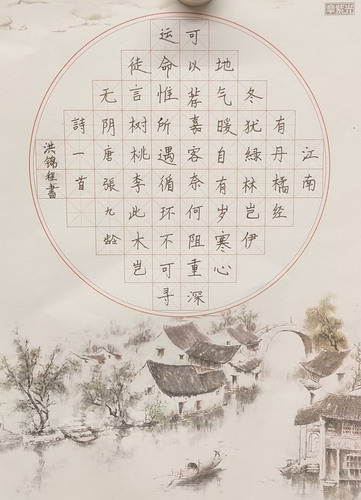 江南
有丹橘经
冬犹緑林岂伊
地气暖自有岁寒心
可以荐嘉客奈何阻重深
运命惟所遇循环不可寻
徒言树桃李此木岂
无阴唐張九龄
詩一首
洪锦書
章紫光